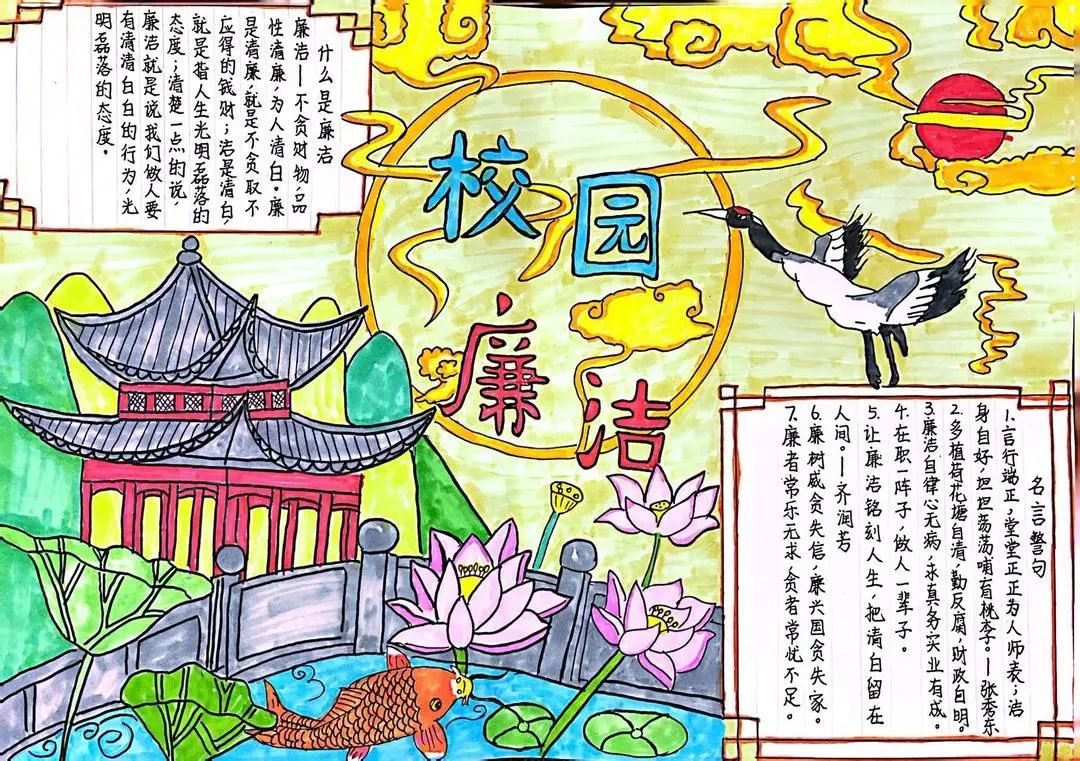 什么是廉洁
廉洁一不贪财物,品
性清廉,为人清白。廉
是清廉,就是不贪取不
应得的钱财;洁是清白,
就是指人生光明磊落的
态度;清楚一点的说,
廉洁就是说我们做人要
有清清白白的行为,光
明磊落的态度。
校园
廉洁
名言警句
1.言行端正,堂堂正正为人师表;洁
身自好,坦坦荡荡哺育桃李。一张秀东
2.多植荷花塘自清,勤反腐,财政自明。
3.廉洁自律心无病,求真务实业有成。
4.在职一阵子,做人一辈子。
5.让廉洁铭刻人生,把清白留在
人间。一齐润芳
6.廉树威贪失信,廉兴国贪失家。
7.廉者常乐无求,贪者常忧不足。